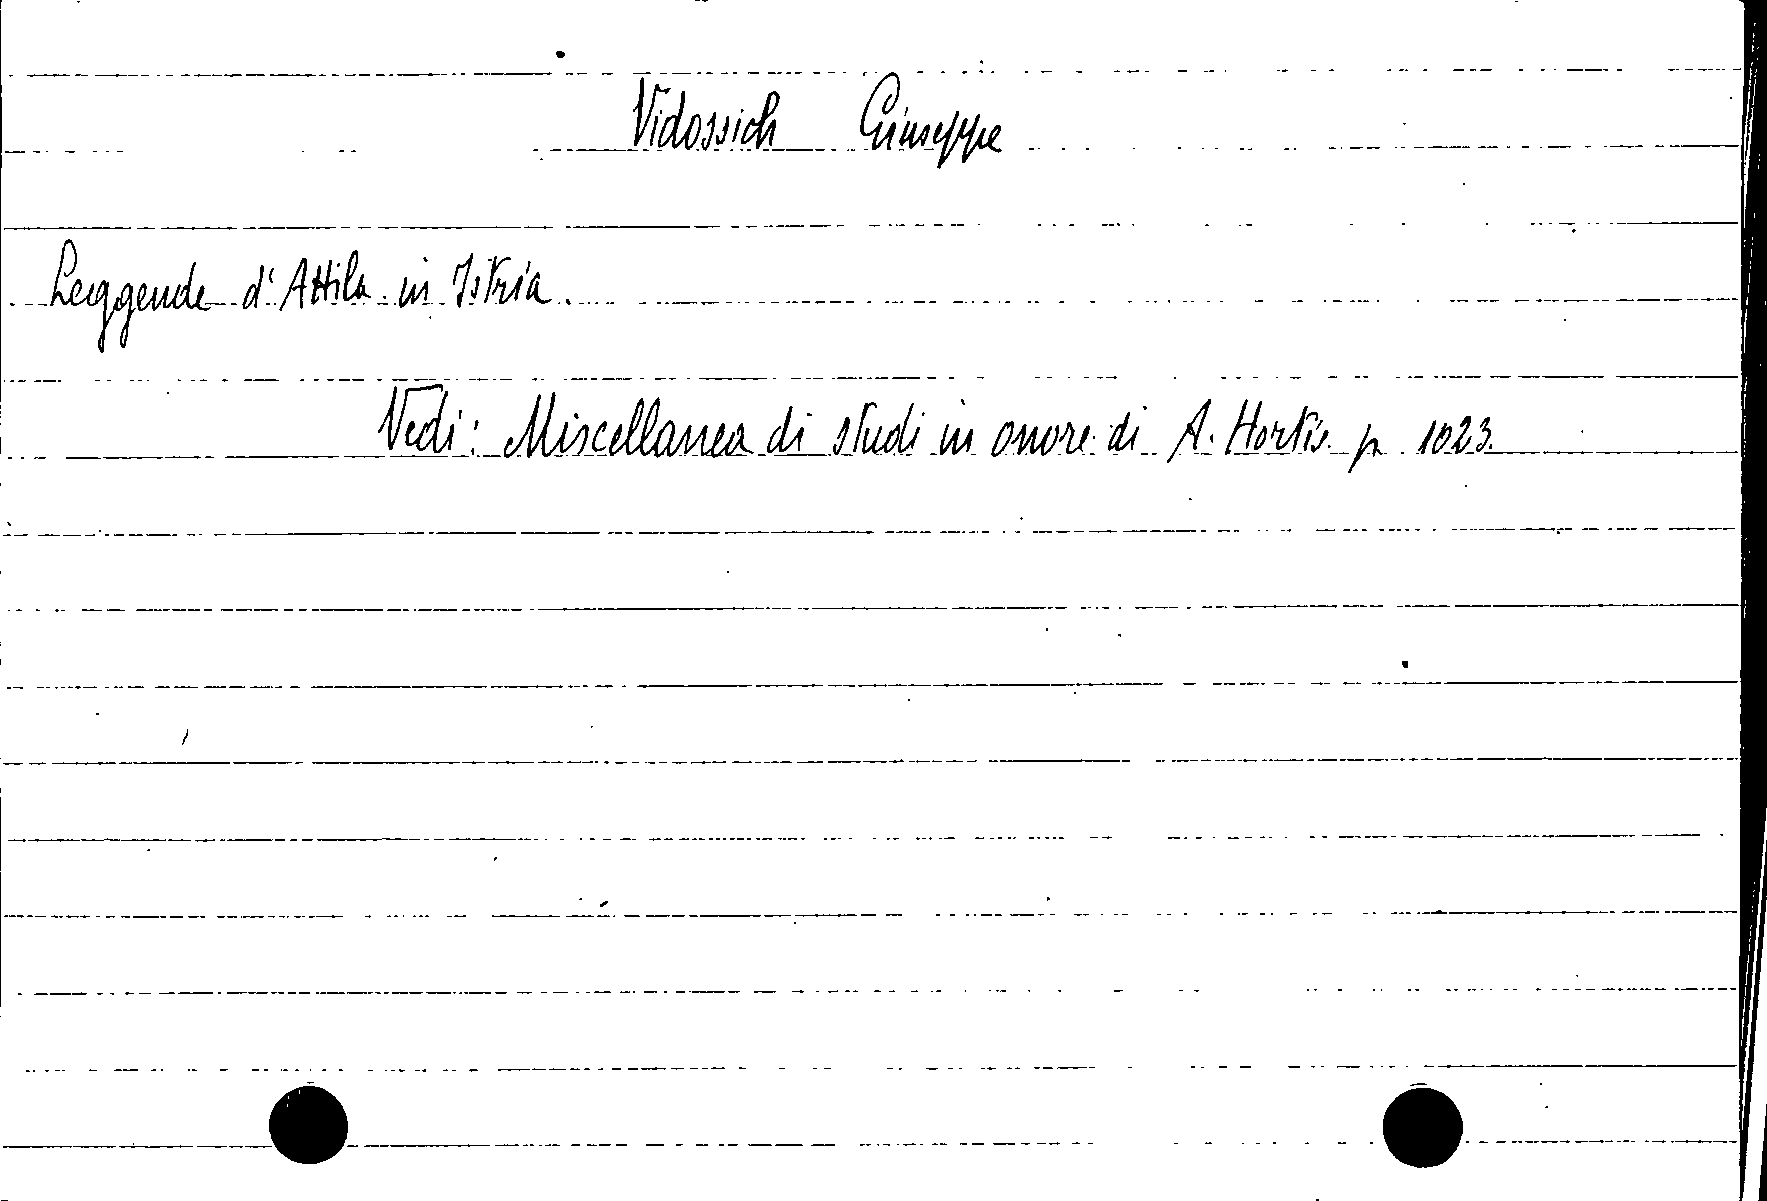 Vidossich Giuseppe
Leggende d'Attila in Istria.
Vedi: Miscellanea di studi in onore di A. Hortis. p. 1023.